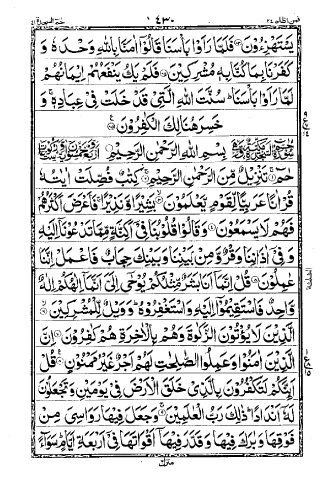 فمن اظلم ٢٤ ٤٣٠ حٰمٓ السجدة ٤١
يَسْتَهْزِءُوْنَ۝ فَلَمَّا رَاَوْا بَاْسَنَا قَالُوْٓا اٰمَنَّا بِاللّٰهِ وَحْدَهٗ وَ
كَفَرْنَا بِمَا كُنَّا بِهٖ مُشْرِكِيْنَ۝ فَلَمْ يَكُ يَنْفَعُهُمْ اِيْمَانُهُمْ
لَمَّا رَاَوْا بَاْسَنَا ؕ سُنَّتَ اللّٰهِ الَّتِيْ قَدْ خَلَتْ فِيْ عِبَادِهٖ ۚ وَ
خَسِرَ هُنَالِكَ الْكٰفِرُوْنَ۝
بِسْمِ اللّٰهِ الرَّحْمٰنِ الرَّحِيْمِ
حٰمٓ ۝ تَنْزِيْلٌ مِّنَ الرَّحْمٰنِ الرَّحِيْمِ ۝ كِتٰبٌ فُصِّلَتْ اٰيٰتُهٗ
قُرْاٰنًا عَرَبِيًّا لِّقَوْمٍ يَّعْلَمُوْنَ ۝ بَشِيْرًا وَّنَذِيْرًا ۚ فَاَعْرَضَ اَكْثَرُهُمْ
فَهُمْ لَا يَسْمَعُوْنَ ۝ وَقَالُوْا قُلُوْبُنَا فِيْٓ اَكِنَّةٍ مِّمَّا تَدْعُوْنَآ اِلَيْهِ
وَفِيْٓ اٰذَانِنَا وَقْرٌ وَّمِنْۢ بَيْنِنَا وَبَيْنِكَ حِجَابٌ فَاعْمَلْ اِنَّنَا
عٰمِلُوْنَ ۝ قُلْ اِنَّمَآ اَنَا بَشَرٌ مِّثْلُكُمْ يُوْحٰٓى اِلَيَّ اَنَّمَآ اِلٰهُكُمْ اِلٰهٌ
وَّاحِدٌ فَاسْتَقِيْمُوْٓا اِلَيْهِ وَاسْتَغْفِرُوْهُ ؕ وَوَيْلٌ لِّلْمُشْرِكِيْنَ ۝
الَّذِيْنَ لَا يُؤْتُوْنَ الزَّكٰوةَ وَهُمْ بِالْاٰخِرَةِ هُمْ كٰفِرُوْنَ ۝ اِنَّ
الَّذِيْنَ اٰمَنُوْا وَعَمِلُوا الصّٰلِحٰتِ لَهُمْ اَجْرٌ غَيْرُ مَمْنُوْنٍ ۝ قُلْ
اَئِنَّكُمْ لَتَكْفُرُوْنَ بِالَّذِيْ خَلَقَ الْاَرْضَ فِيْ يَوْمَيْنِ وَتَجْعَلُوْنَ
لَهٗٓ اَنْدَادًا ؕ ذٰلِكَ رَبُّ الْعٰلَمِيْنَ ۝ وَجَعَلَ فِيْهَا رَوَاسِيَ مِنْ
فَوْقِهَا وَبٰرَكَ فِيْهَا وَقَدَّرَ فِيْهَآ اَقْوَاتَهَا فِيْٓ اَرْبَعَةِ اَيَّامٍ ؕ سَوَآءً
منزل